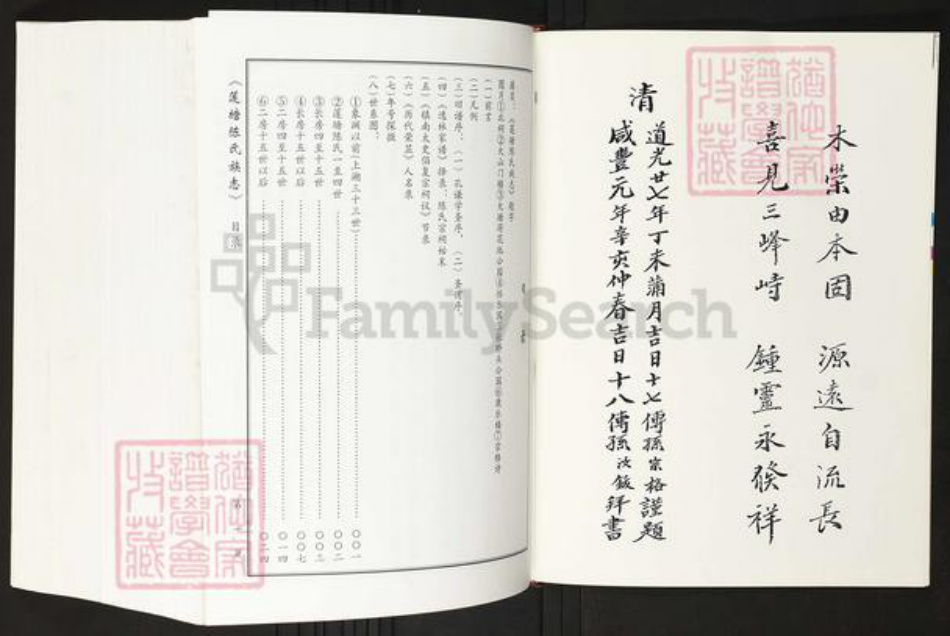 木榮由本固 源遠自流長
喜見三峰峙 鍾靈永發祥
清
道光廿七年丁未蒲月吉日十七傳孫宗格謹題
咸豐元年辛亥仲春吉日十八傳孫汝鈑拜書
猶他家
譜學會
收藏
目
(一)前言
(二)凡例
(三)旧谱序：(一)孔谦学墓序，(二)
(四)《逸林家谱》择录：陈氏宗祠始末
(五)《镇南太史倡复宗祠议》节录
(六)《历代荣显》人名录
(七)年号探微
(八)世系图：
①象渊以前(上溯三十三世)……〇〇一
②莲塘陈氏一至四世……〇〇二
③长房四至十五世……〇〇三
④长房十五世以后……〇〇七
⑤二房四至十五世……〇一四
⑥二房十五世以后……〇二四
《莲塘陈氏族志》 目录
猶他家
譜學會
收藏
FamilySearch